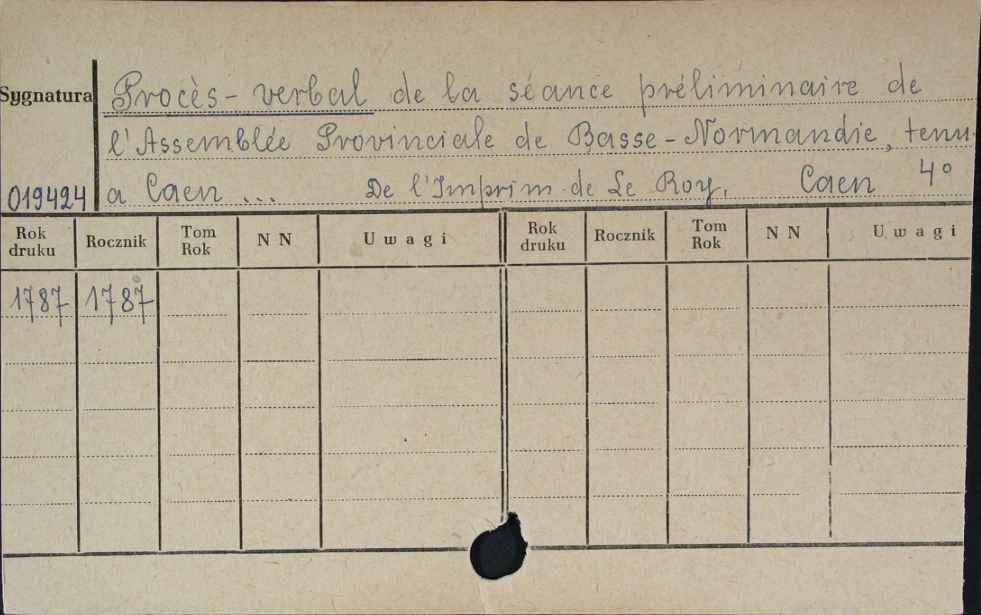 Sygnatura
Procès-verbal de la séance préliminaire de
l'Assemblée Provinciale de Basse-Normandie, tenu
019424 a Caen ... De l'Imprim. de Le Roy, Caen 4°
Rok druku Rocznik Tom Rok N N Uwagi Rok druku Rocznik Tom Rok N N Uwagi
1787 1787